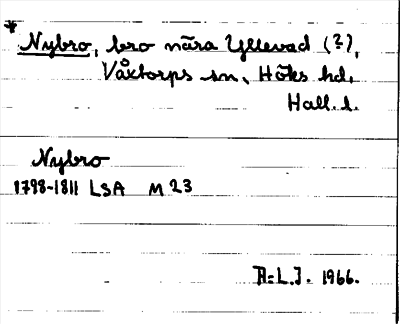 * Nybro, bro nära Yllevad (?),
Våxtorps sn, Höks hd,
Hall. l.
Nybro
1798-1811 LSA M 23
B-L.J. 1966.